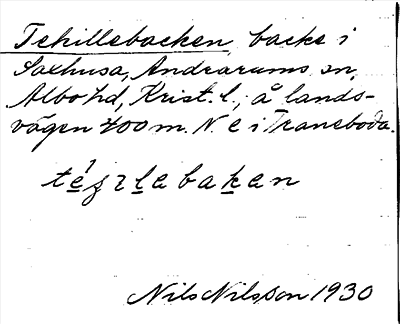 Tekillebacken, backe i
Saxhusa, Andrarums sn,
Albo hd, Krist. l., å lands-
vägen 400 m. N. e i Traneboda.
Nils Nilsson 1930